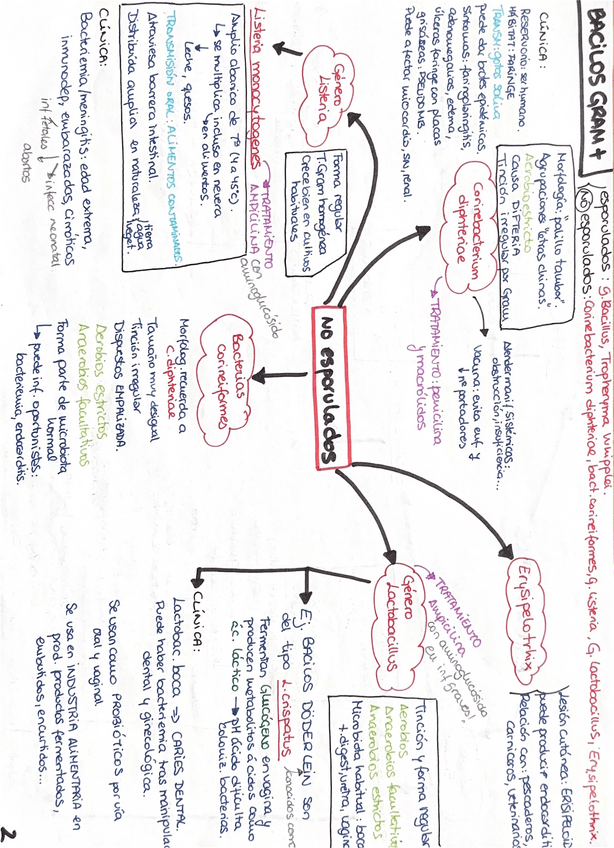 BACILOS GRAM +
esporulados: G. Bacillus, Tropheryma whipplei.
NO esporulados: Corinebacterium diphteriae, bact. corineiformes, G. listeria, G. lactobacillus, Erysipelothrix.
NO esporulados
Corinebacterium diphteriae
Morfología: "palillo tambor".
Agrupaciones "letras chinas".
Aerobio estricto
Causa DIFTERIA
Tinción irregular por Gram
CLÍNICA:
RESERVORIO: ser humano.
HÁBITAT: FARINGE
TRANSM: gotas saliva
puede dar brotes epidémicos.
Síntomas: faringoamigdalitis,
adenomegalias, edema,
úlceras faringe con placas
grisáceas: PSEUDOMB.
Puede afectar miocardio, SN, renal.
obstrucción, insuficiencia...
Vacuna: evita enf y
portadores
TRATAMIENTO: penicilina
y macrólidos
Género Listeria
Forma regular
T. Gram homogénea
Crece bien en cultivos
habituales
Listeria monocytogenes
TRATAMIENTO
AMPICILINA con
aminoglucósido
Amplio abanico de Tª (4 a 45ºC).
se multiplica incluso en nevera
en alimentos.
Leche, quesos.
TRANSMISIÓN ORAL: ALIMENTOS CONTAMINADOS
Atraviesa barrera intestinal.
Distribución amplia en naturaleza
tierra
agua
veget.
CLÍNICA:
Bacteriemia/meningitis: edad extrema,
inmunodep, embarazadas, cirróticos
infección neonatal
abortos
Bacterias corineiformes
Morfolog. recuerda a
C. diphteriae
Tamaño muy desigual
Tinción irregular
Dispuestos EMPALIZADA.
Aerobios estrictos
Anaerobios facultativos
Forma parte de microbiota
normal
puede inf. oportunistas:
bacteriemia, endocarditis.
Erysipelothrix
Lesión cutánea: ERISIPELOI
puede producir endocardit
Relación con: pescaderos,
carniceros, veterinario
Género Lactobacillus
TRATAMIENTO
Ampicilina
con aminoglucósido
en inf graves!
Tinción y forma regular
Aerobios
Anaerobios facultativos
Anaerobios estrictos
Microbiota habitual: boca
t. digest, uretra, vagina
Ej. BACILOS DÖDERLEIN son
del tipo L. crispatus
conocidos como
Fermentan glucógeno en vagina y
producen metabolitos ácidos como
ác. láctico → pH ácido dificulta
coloniz. bacterias.
CLÍNICA:
Lactobac. boca ⇒ CARIES DENTAL.
Puede haber bacteriemia tras manipula
dental y ginecológica.
Se usan como PROBIÓTICOS por vía
oral y vaginal
Se usa en INDUSTRIA ALIMENTARIA en
prod. productos fermentados,
embutidos, encurtidos...
2